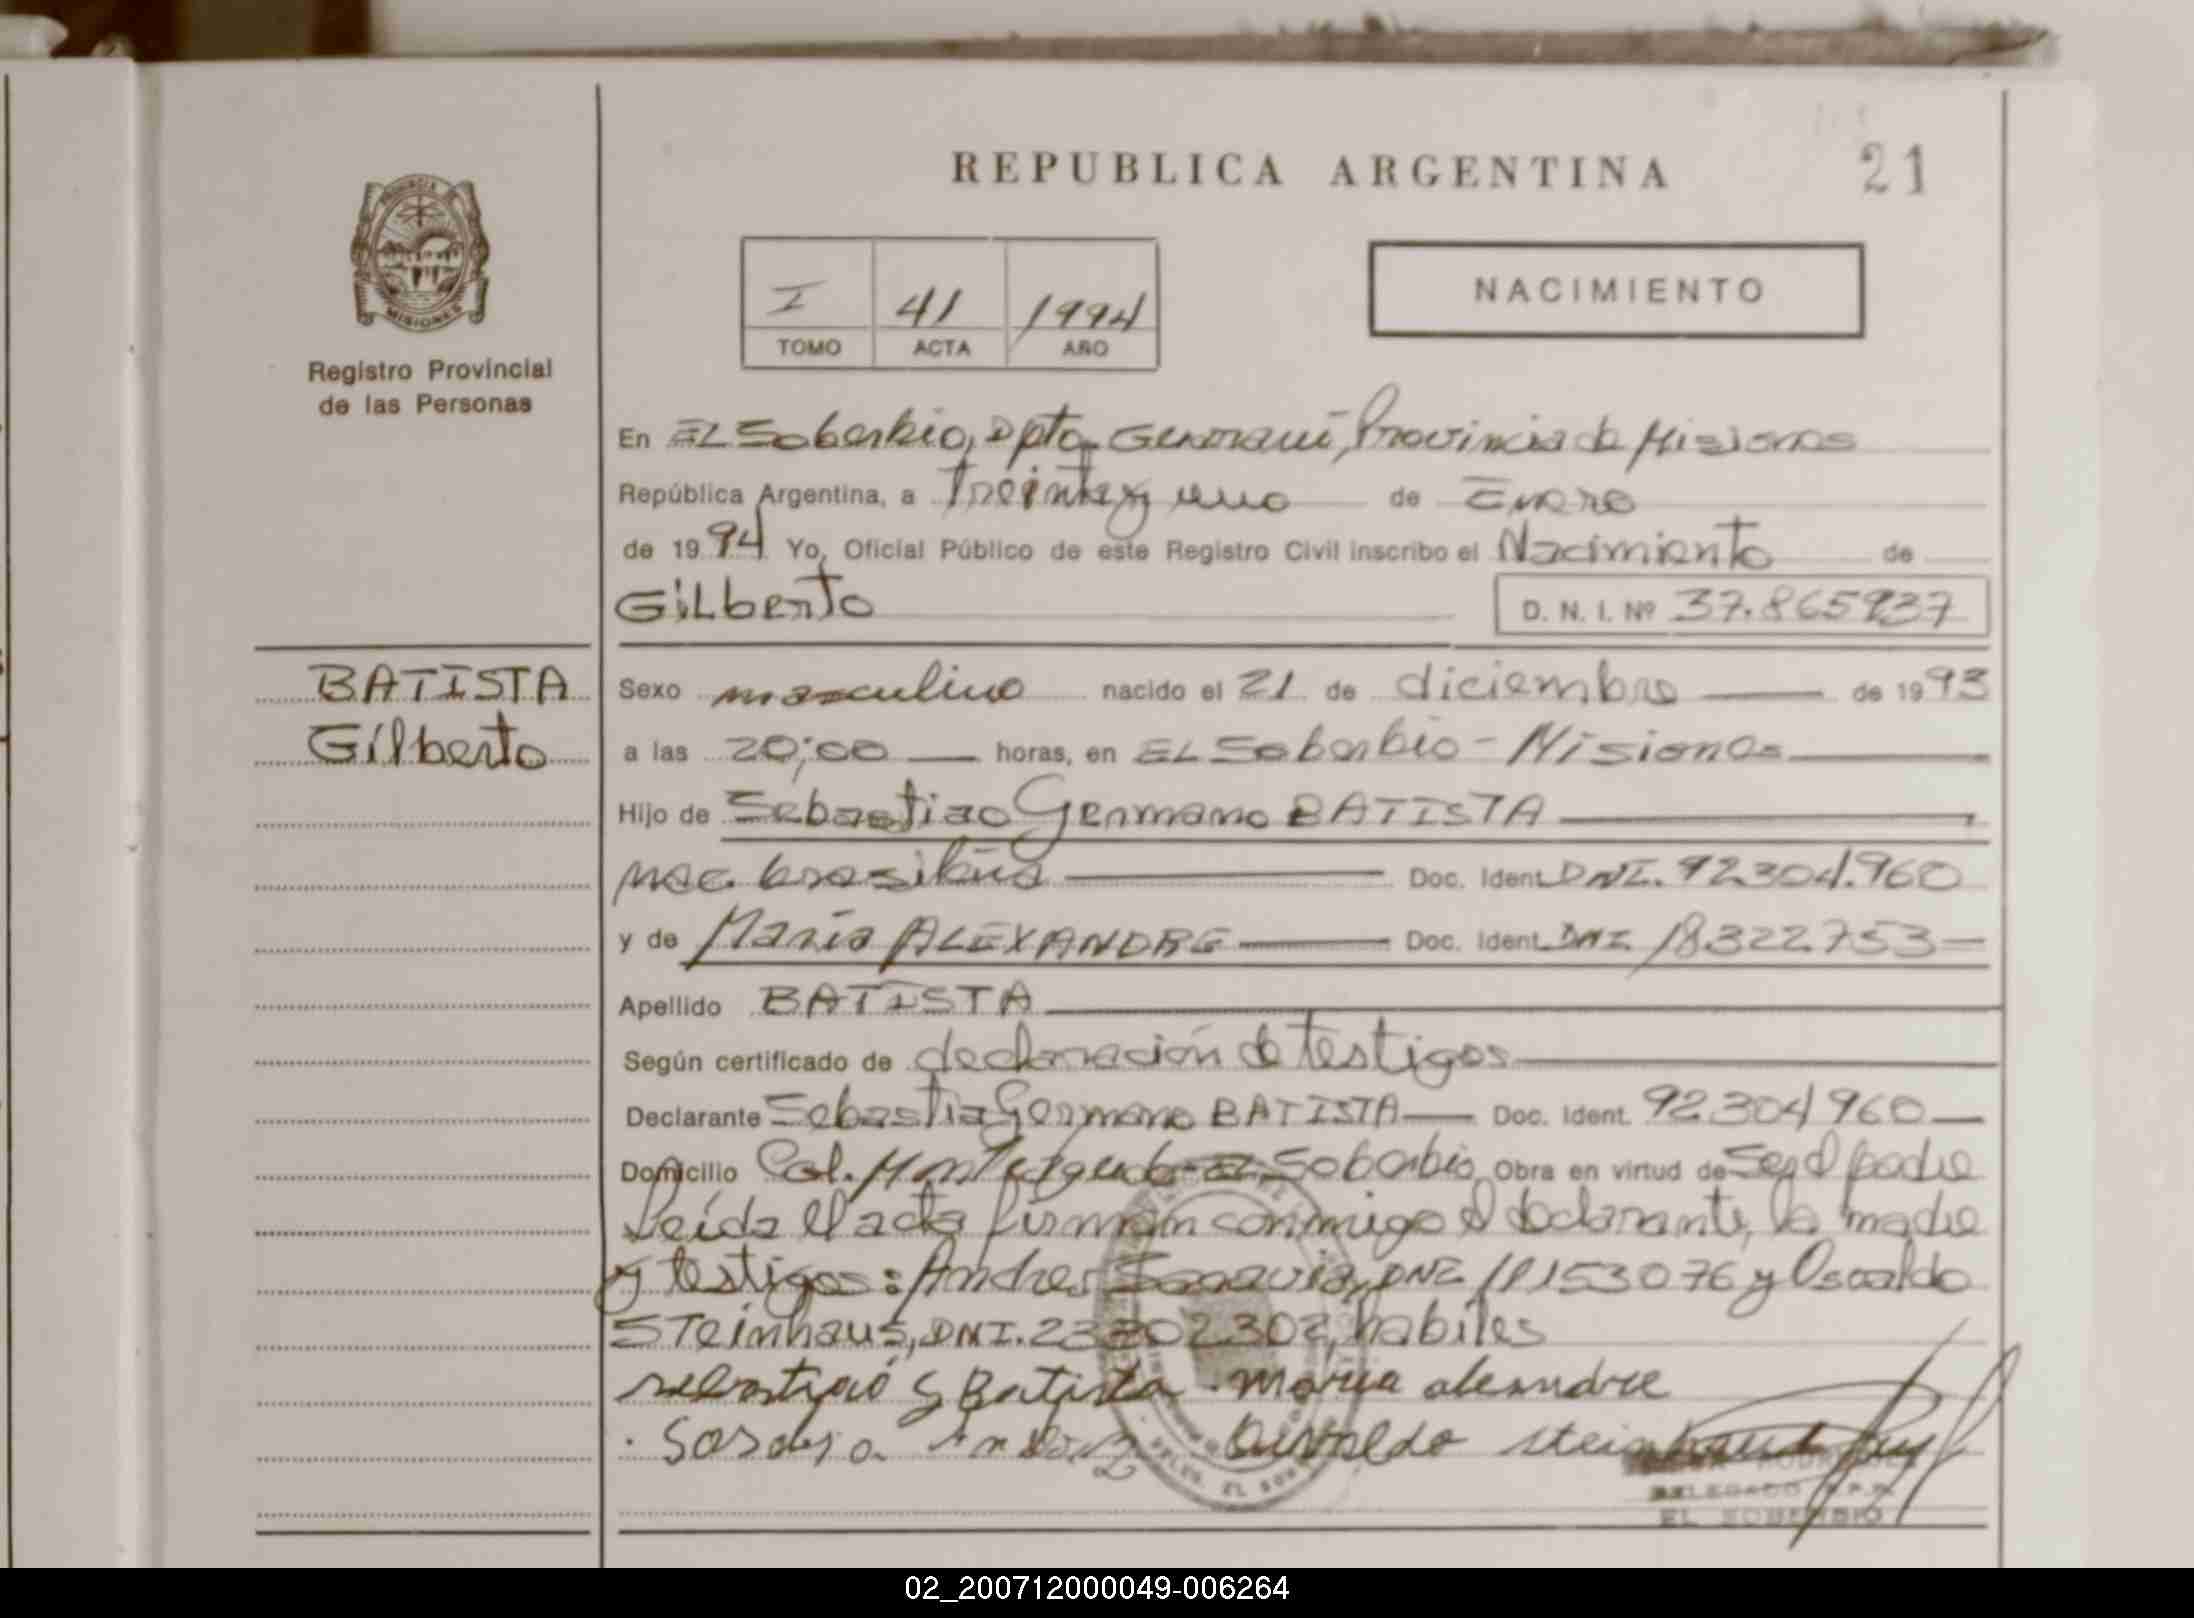 REPUBLICA ARGENTINA
21
PROVINCIA
MISIONES
Registro Provincial
de las Personas
I 41 1994
TOMO ACTA AÑO
NACIMIENTO
En EL Soberbio, Dpto. Guaraní, Provincia de Misiones
República Argentina, a treinta y uno de Enero
de 1994 Yo, Oficial Público de este Registro Civil inscribo el Nacimiento de
Gilberto D. N. I. Nº 37.865937
BATISTA
Gilberto
Sexo masculino nacido el 21 de diciembre de 1993
a las 20;00 horas, en EL Soberbio - Misiones
Hijo de Sebastiao Germano BATISTA
nac. brasileña Doc. Ident. DNI. 92.304.960
y de María ALEXANDRE Doc. Ident. DNI 18322753
Apellido BATISTA
Según certificado de declaración de testigos
Declarante Sebastia Germano BATISTA Doc. Ident. 92304960
Domicilio Col. Monteagudo - EL Soberbio Obra en virtud de Ser el padre
Leída el acta firman conmigo el declarante, la madre
y testigos: Andres DNI 153076 y Osvaldo
Steinhaus, DNI. 302, habiles
sebastiao G Batista Maria alexandre
Osvaldo Steinhaus
DELEG. EL SOBERBIO
RODRIGUEZ
DELEGADO R.P.P.
EL SOBERBIO
02_200712000049-006264